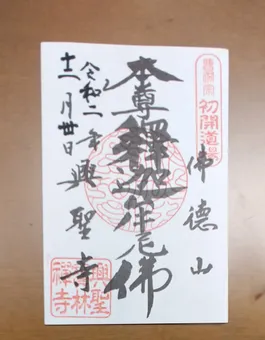 曹洞宗
初開道場
佛徳山
本尊釋迦牟尼佛
令和二年
興聖寺
十二月卅日
興聖
禅林
寺